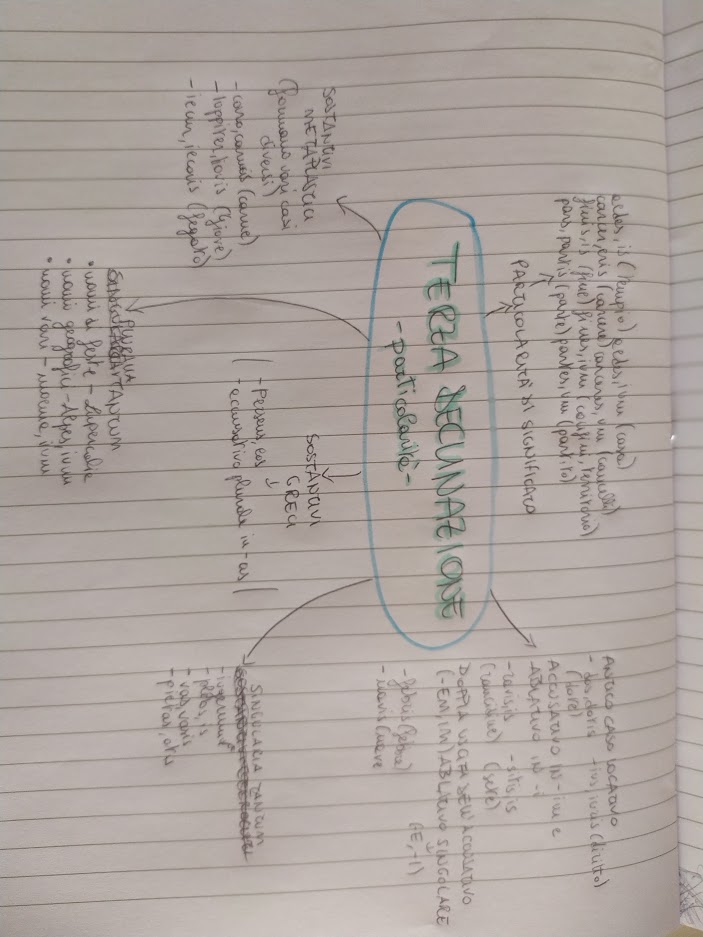 TERZA DECLINAZIONE
- particolarità -
PARTICOLARITÀ DI SIGNIFICATO
aedes, is (tempio) aedes, ium (casa)
carcer, eris (carcere) carceres, um (cancelli)
finis, is (fine) fines, ium (confini, territorio)
pars, partis (parte) partes, ium (partito)
ANTICO CASO LOCATIVO
- dos, dotis - ius, iuris (diritto)
(dote)
ACCUSATIVO IN -im e
ABLATIVO IN -i
- ravis, is - sitis, is
(raucedine) (sete)
DOPPIA USCITA DELL'ACCUSATIVO
(-EM, IM) ABLATIVO SINGOLARE
(E, -I)
- febris (febbre)
- navis (nave
SOSTANTIVI
METAPLASTICI
(formano vari casi
diversi)
- caro, carnis (carne)
- Iuppiter, Iovis (Giove)
- iecur, iecoris (fegato)
PLURALIA
TANTUM
• nomi di feste -
• nomi geografici - Alpes, ium
• nomi vari - moenia, ium
SOSTANTIVI
GRECI
- Perseus, eos
- accusativo plurale in -as
SINGULARIA TANTUM
- plebs, is
- vas, vasis
- pietas, atis